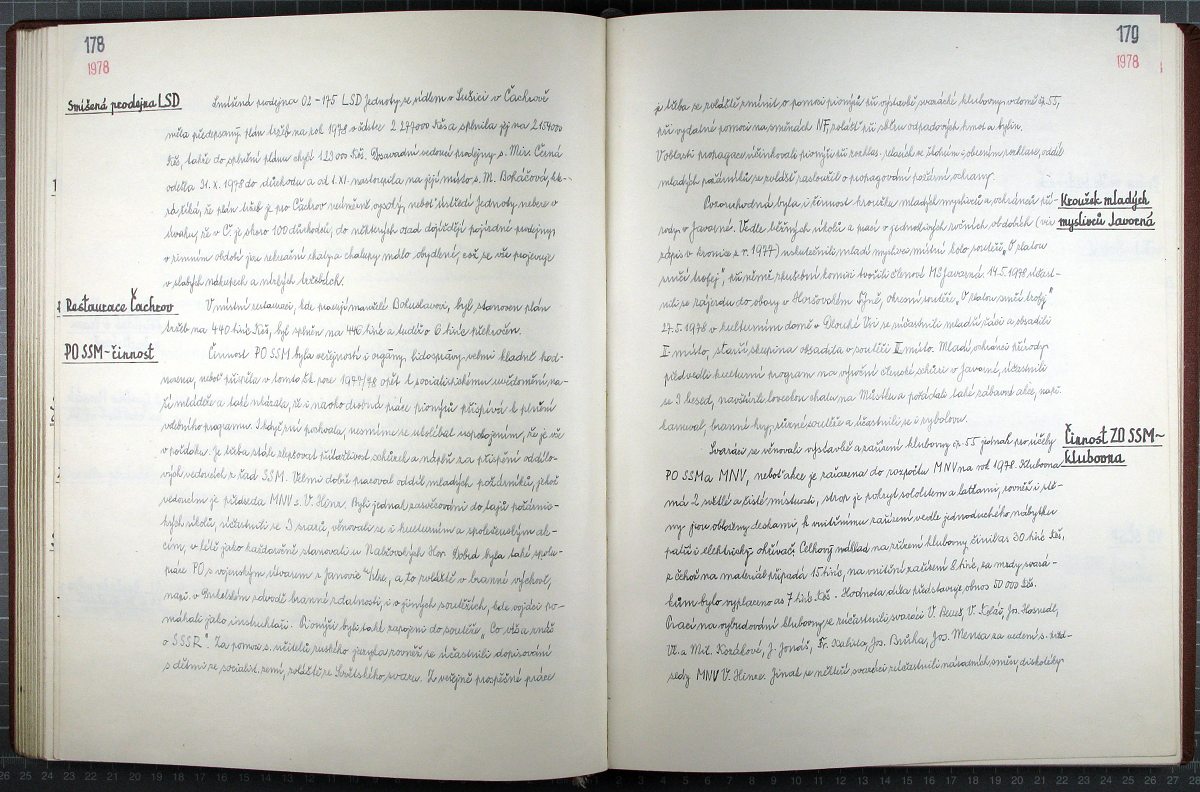 178
1978
Smíšená prodejna LSD
Smíšená prodejna 02-175 LSD Jednoty se sídlem v Sušici v Čachrově
měla předepsaný plán tržeb na rok 1978 v částce 2 277 000 Kčs a splnila jej na 2 154 000
Kčs, takže do splnění plánu chybí 123 000 Kčs. Dosavadní vedoucí prodejny s. Mir. Černá
odešla 31. X. 1978 do důchodu a od 1. XI. nastoupila na její místo s. M. Boháčová, kte-
rá říká, že plán tržeb je pro Čachrov neúměrně vysoký, neboť ústředí Jednoty nebere v
úvahu, že v Č. je skoro 100 důchodců, do některých osad dojíždějí pojízdné prodejny,
v zimním období jsou rekreační chaty a chalupy málo obydlené, což se vše projevuje
v slabých nákupech a nízkých tržbách.
Restaurace Čachrov
V místní restauraci, kde pracují manželé Bohuslavovi, byl stanoven plán
tržeb na 440 tisíc Kčs, byl splněn na 446 tisíc a tudíž o 6 tisíc překročen.
PO SSM-činnost
Činnost PO SSM byla veřejností i orgány lidosprávy velmi kladně hod-
nocena, neboť přispěla v tomto šk. roce 1977/78 opět k socialistickému uvědomění na-
ší mládeže a také ukázala, že i na oko drobná práce pionýrů přispívá k plnění
volebního programu. I když zní pochvala, nesmíme se ukolébat uspokojením, že je vše
v pořádku. Je třeba stále zlepšovat přitažlivost schůzek a náplň za přispění oddílo-
vých vedoucích z řad SSM. Velmi dobře pracoval oddíl mladých požárníků, jehož
vedoucím je předseda MNV s. V. Hinze. Byli jednak zasvěcováni do tajů požárnic-
kých úkolů, účastnili se 3 srazů, věnovali se i kulturním a společenským ak-
cím, v létě jako každoročně stanovali u Nalžovských Hor. Dobrá byla také spolu-
práce PO s vojenským útvarem z Janovic n/Úhl., a to zvláště v branné výchově,
např. v Dukelském závodě branné zdatnosti, i v jiných soutěžích, kde vojáci po-
máhali jako instruktoři. Pionýři byli také zapojeni do soutěže „Co víš a znáš
o SSSR". Za pomoci s. učitelů ruského jazyka rovněž se účastnili dopisování
s dětmi ze socialist. zemí, zvláště ze Sovětského svazu. Z veřejně prospěšné práce
179
1978
je třeba se zvláště zmínit o pomoci pionýrů při výstavbě svazácké klubovny v domě čp. 55,
při vydatné pomoci na směnách NF, zvlášť při sběru odpadových hmot a bylin.
V oblasti propagace účinkovali pionýři při rozhlas. relacích ve školním i obecním rozhlase, oddíl
mladých požárníků se zvlášť zasloužil o propagování požární ochrany.
Kroužek mladých
myslivců Javorná
Pozoruhodná byla i činnost kroužku mladých myslivců a ochránců pří-
rody v Javorné. Vedle běžných úkolů a prací v jednotlivých ročních obdobích (viz
zápis v kronice z r. 1977) uskutečnili mladí myslivci místní kolo soutěže „O zlatou
srnčí trofej", při němž zkušební komisi tvořili členové MS Javorná. 14. 5. 1978 účast-
nili se zájezdu do obory v Horšovském Týně, okresní soutěže „O zlatou srnčí trofej"
27. 5. 1978 v kulturním domě v Dlouhé Vsi se zúčastnili mladší žáci a obsadili
I. místo, starší skupina obsadila v soutěži II. místo. Mladí ochránci přírody
předvedli kulturní program na výroční členské schůzi v Javorné, účastnili
se 3 besed, navštívili loveckou chatu na Můstku a pořádali také zábavné akce, např.
karneval, branné hry, různé soutěže a účastnili se i rybolovu.
Činnost ZO SSM-
klubovna
Svazáci se věnovali výstavbě a zařízení klubovny čp. 55 jednak pro účely
PO SSM a MNV, neboť akce je zařazena do rozpočtu MNV na rok 1978. Klubovna
má 2 světlé a čisté místnosti, strop je pokryt sololitem a laťkami, rovněž i stě-
ny jsou obloženy deskami. K vnitřnímu zařízení vedle jednoduchého nábytku
patří i elektrický ohřívač. Celkový náklad na zřízení klubovny činil as 30 tisíc Kčs,
z čehož na materiál připadá 15 tisíc, na vnitřní zařízení 8 tisíc, za mzdy svazá-
kům bylo vyplaceno as 7 tisíc Kčs. Hodnota díla představuje obnos 50 000 Kčs.
Prací na vybudování klubovny se zúčastnili svazáci V. V. Kolář, Jos. Hosnedl,
Vl. a Mil. Korálové, J. Jonáš, Fr. Kabita, Jos. Brůha, Jos. Menza za vedení s. před-
sedy MNV V. Hinze. Jinak se někteří svazáci zúčastnili národních směn, diskotéky